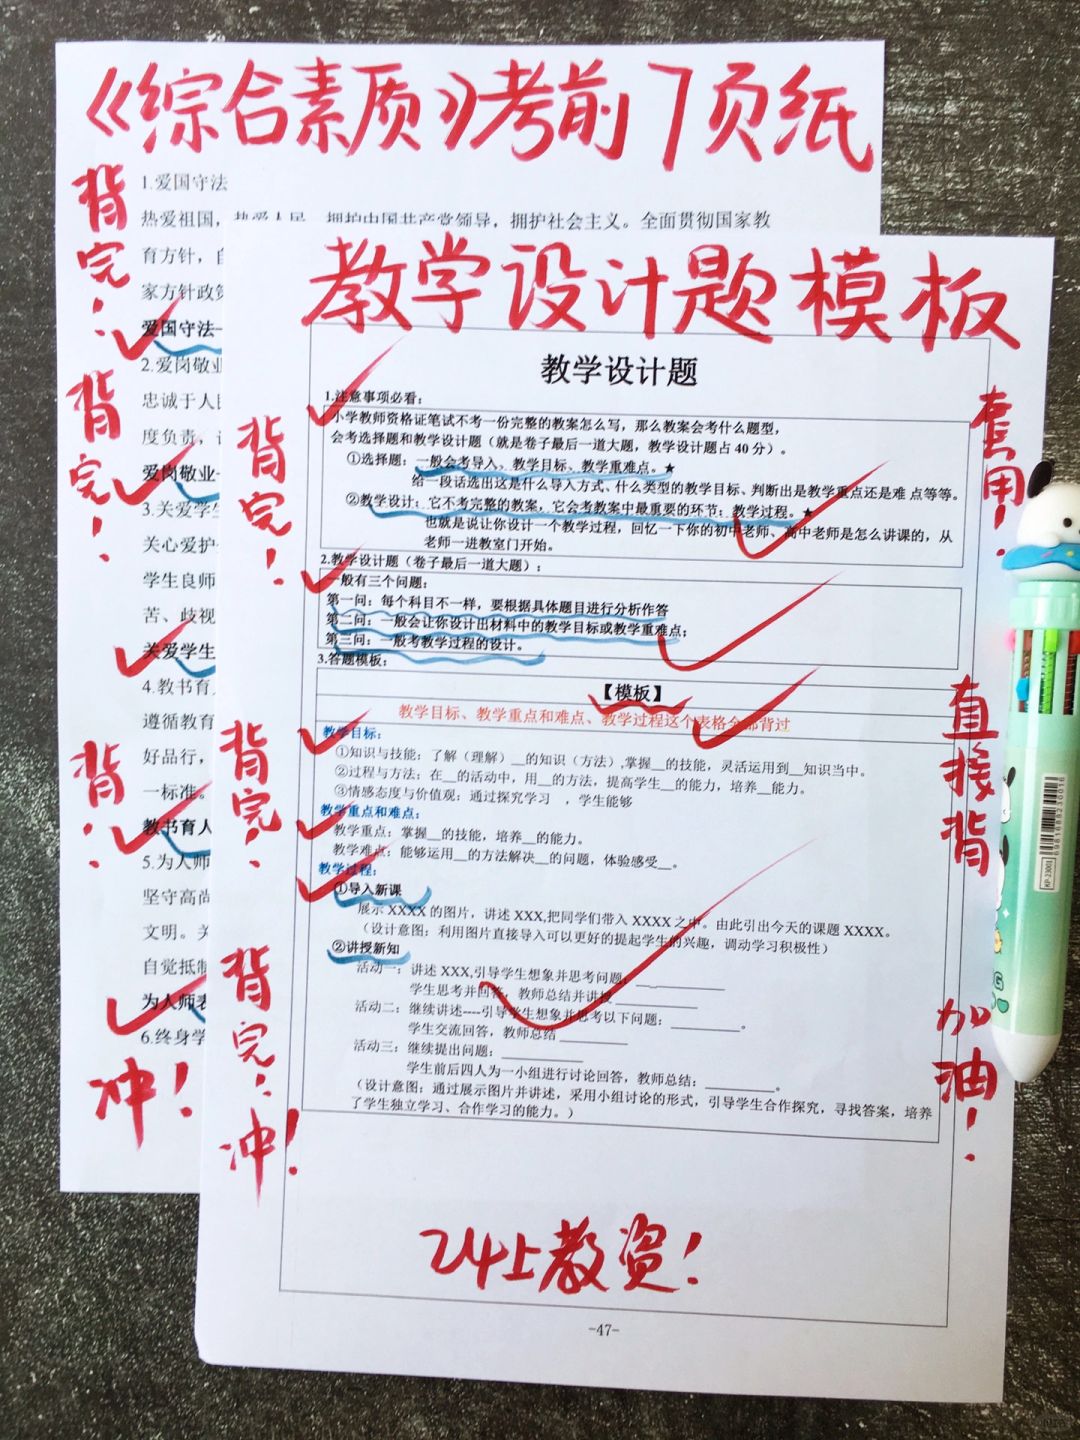 《综合素质》考前7页纸
背完!
1.爱国守法
热爱祖国，热爱人民，拥护中国共产党领导，拥护社会主义。全面贯彻国家教
育方针，自
家方针政策
爱国守法-
2.爱岗敬业
忠诚于人民
度负责，
爱岗敬业-
背完!
3.关爱学生
关心爱护
学生良师
苦、歧视
关爱学生
4.教书育人
遵循教育
好品行，
一标准。
教书育人
背!
5.为人师
坚守高尚
文明。关
自觉抵制
为人师表
6.终身学
冲!
教学设计题模板
教学设计题
1.注意事项必看：
小学教师资格证笔试不考一份完整的教案怎么写，那么教案会考什么题型，
会考选择题和教学设计题（就是卷子最后一道大题，教学设计题占 40 分）。
①选择题：一般会考导入、教学目标、教学重难点。★
给一段话选出这是什么导入方式、什么类型的教学目标、判断出是教学重点还是难 点等等。
②教学设计：它不考完整的教案，它会考教案中最重要的环节：教学过程。★
也就是说让你设计一个教学过程，回忆一下你的初中老师、高中老师是怎么讲课的，从
老师一进教室门开始。
2.教学设计题（卷子最后一道大题）：
一般有三个问题：
第一问：每个科目不一样，要根据具体题目进行分析作答
第二问：一般会让你设计出材料中的教学目标或教学重难点；
第三问：一般考教学过程的设计。
3.答题模板：
【模板】
教学目标、教学重点和难点、教学过程这个表格全部背过
教学目标：
①知识与技能：了解（理解）__的知识（方法）,掌握__的技能，灵活运用到__知识当中。
②过程与方法：在__的活动中，用__的方法，提高学生__的能力，培养__能力。
③情感态度与价值观：通过探究学习 ，学生能够
教学重点和难点：
教学重点：掌握__的技能，培养__的能力。
教学难点：能够运用__的方法解决__的问题，体验感受__。
教学过程：
①导入新课
展示 XXXX 的图片，讲述 XXX,把同学们带入 XXXX 之中。由此引出今天的课题 XXXX。
（设计意图：利用图片直接导入可以更好的提起学生的兴趣，调动学习积极性）
②讲授新知
活动一：讲述 XXX,引导学生想象并思考问题：__________
学生思考并回答，教师总结并讲授__________
活动二：继续讲述----引导学生想象并思考以下问题：__________。
学生交流回答，教师总结__________
活动三：继续提出问题：__________
学生前后四人为一小组进行讨论回答，教师总结：__________。
（设计意图：通过展示图片并讲述，采用小组讨论的形式，引导学生合作探究，寻找答案，培养
了学生独立学习、合作学习的能力。）
背完!
背完!
背完!
冲!
套用!
直接背
加油!
24上教资!
-47-
KP-3300J